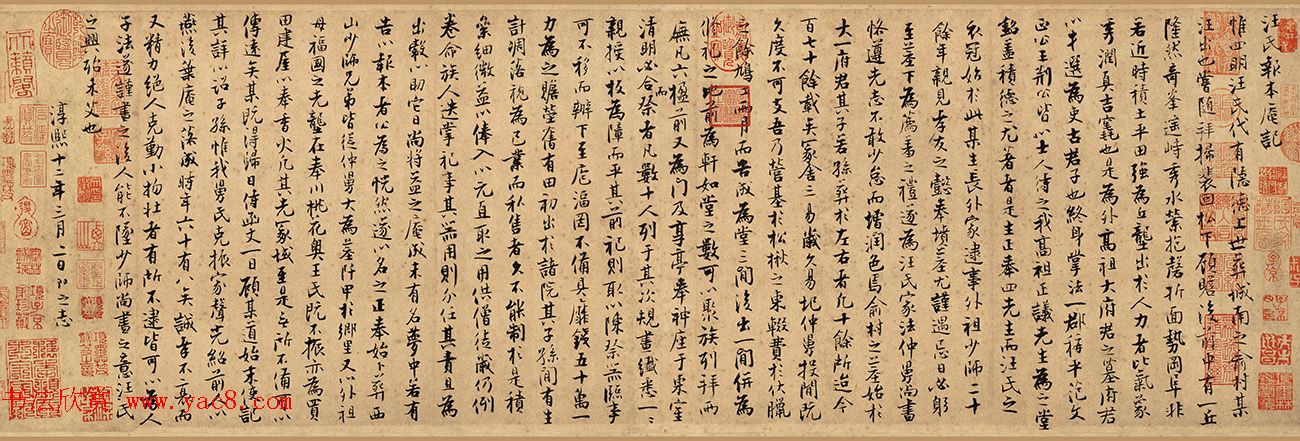 汪氏報本庵記
惟四明汪氏代有隱德上世葬城南之俞村某
汪出也嘗隨拜掃裴回松下顧瞻法前中有一丘
隆然奇峯遥峙秀水縈抱磬折面勢岡阜非
若近時積土平田強為丘壟出於人力者比氣象
秀潤真吉竁也是為外高祖大府君之墓府君
以才選為吏古君子也終身掌法一郡稱平范文
正公王荆公皆以士人待之我高祖正議先生為之
銘盖積德之尤著者是生正奉四先生而汪氏之
衣冠始於此某生長外家逮事外祖少師二十
餘年親見孝友之懿奉墳墓尤謹過忌日必躬
至墓下為薦羞之禮遂為汪氏家法仲舅尚書
恪遵先志不敢少怠而增潤色焉俞村之墓始於
大一府君其子若孫葬於左右者凡十餘所迨今
百七十餘載矣冢舍三易歲久易圮仲舅投閒阮
久度不可支吾乃營基於松楸之東輟費於伏臘
之餘鳩工兩月而告成為堂三間後出一間併為
脩祀之地前為軒如堂之數可以聚族列拜兩
廡凡六楹前又為門及享亭奉神座于東室
清明必合祭者凡數十人列于其次規畫纖悉一一
親授以板為障而平其前祀則取以陳祭而臨事
可不移而辦下至庖湢罔不備具靡錢五十萬一
力為之贍塋舊有田初出於諸院其子孫間有生
計凋落視為己業而私售者久不能制於是積
絫細微益以俸入以元直取之用供僧徒歲仍例
卷俞族人迭掌祀事其器用則分任其責且為
出穀以助它日尚將益之庵成未有名夢中若有
告以報本者公為之怳然遂以名之正奉始下葬西
山少師兄弟皆從仲舅大為墓阡甲於鄉里又以外祖
母福國之先壟在奉川桃花奥王氏既不振亦為買
田建屋以奉香火凡其先冢域至是無所不備以
傳遠矣某既得歸日侍函丈一日顧某道始末俾記
其詳以詔子孫惟我舅氏克振家聲光紹前
燕後筆庵之落成時年六十有八矣誠孝不衰而
又精力絶人克勤小物壯者有所不逮皆可以為人
子法道謹書之後人能不墜少師尚書之意汪氏
之興殆未艾也
淳熙十二年三月一日 記
书法欣赏 www.yac8.com